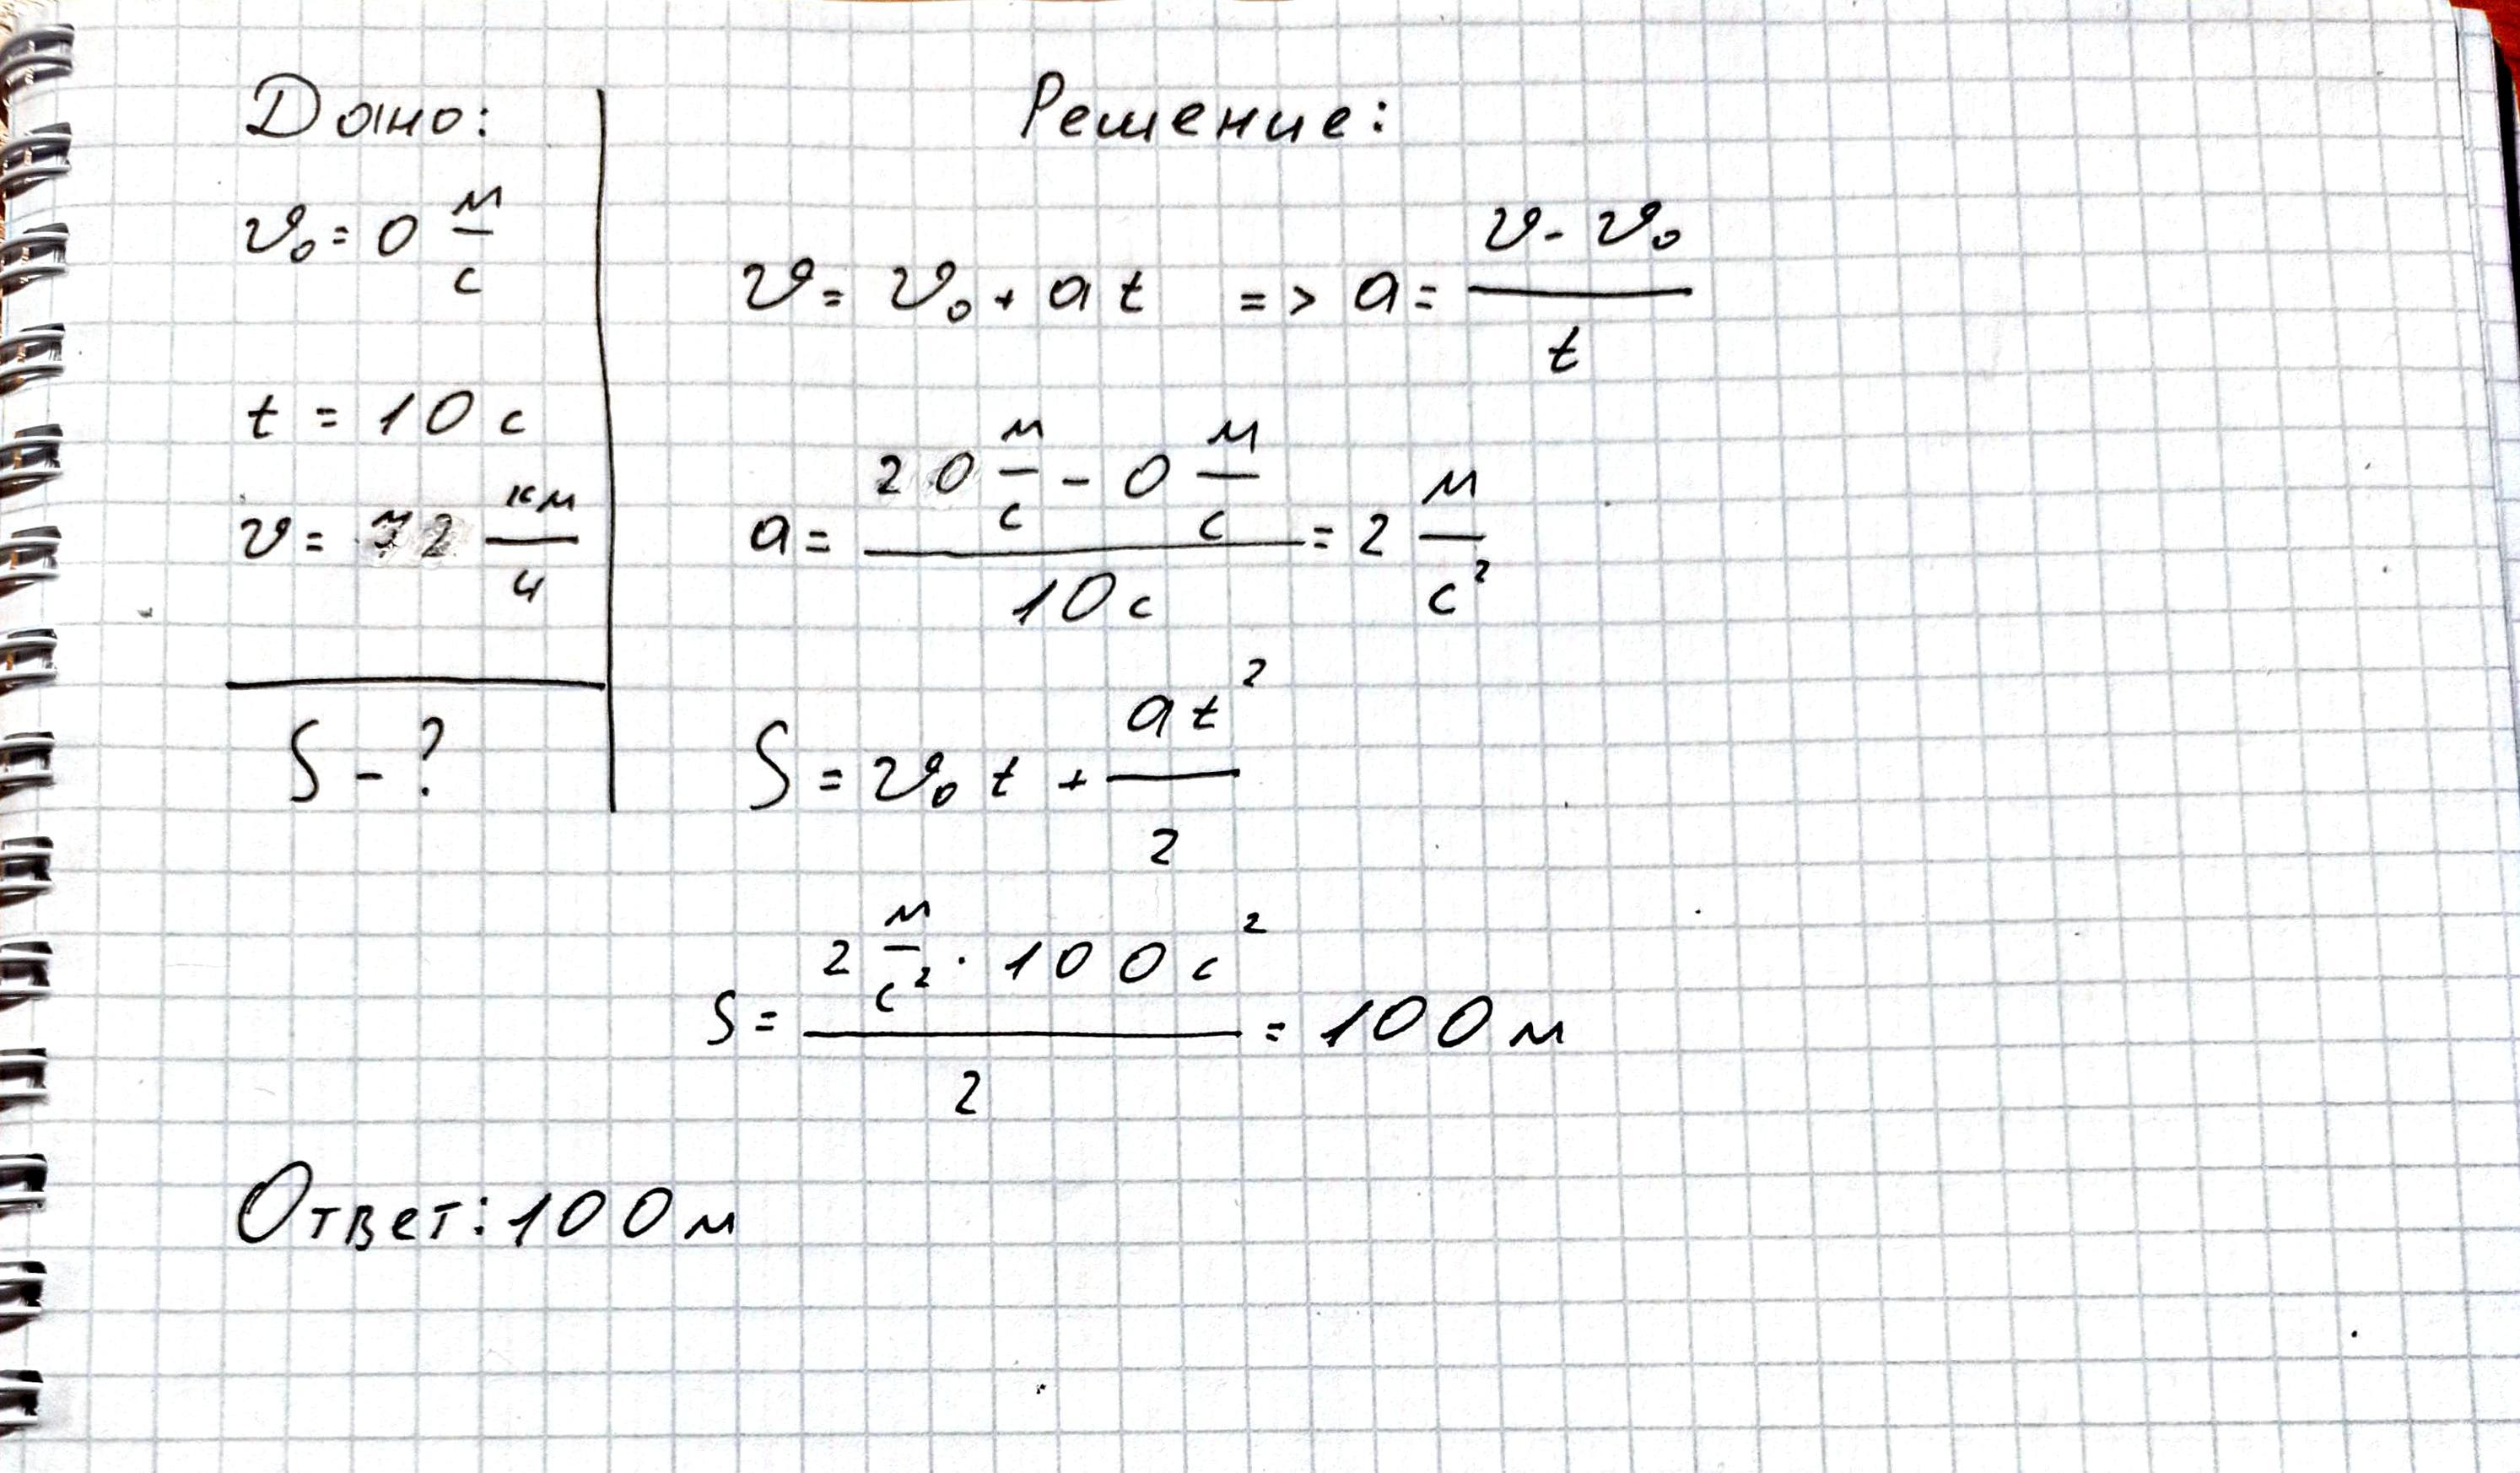 Дано:
v₀ = 0 м/с
t = 10 с
v = 72 км/ч
S - ?
Решение:
v = v₀ + a t => a = (v - v₀)/t
a = (20 м/с - 0 м/с)/(10 с) = 2 м/с²
S = v₀ t + at²/2
S = (2 м/с² · 100 с²)/2 = 100 м
Ответ: 100 м